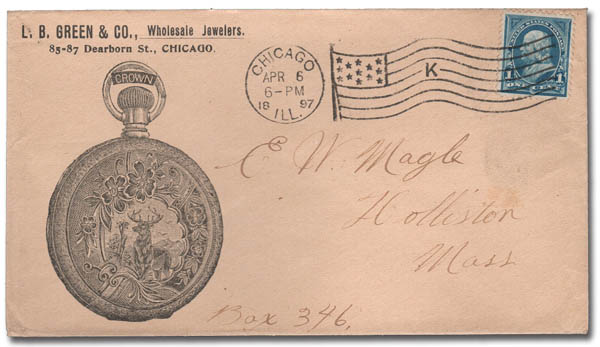 L. B. GREEN & CO., Wholesale Jewelers.
85-87 Dearborn St., CHICAGO.
CROWN
CHICAGO
APR 6
6-PM
1897
ILL.
K
1 ONE CENT 1
E. W. Magle
Holliston
Mass
Box 346.